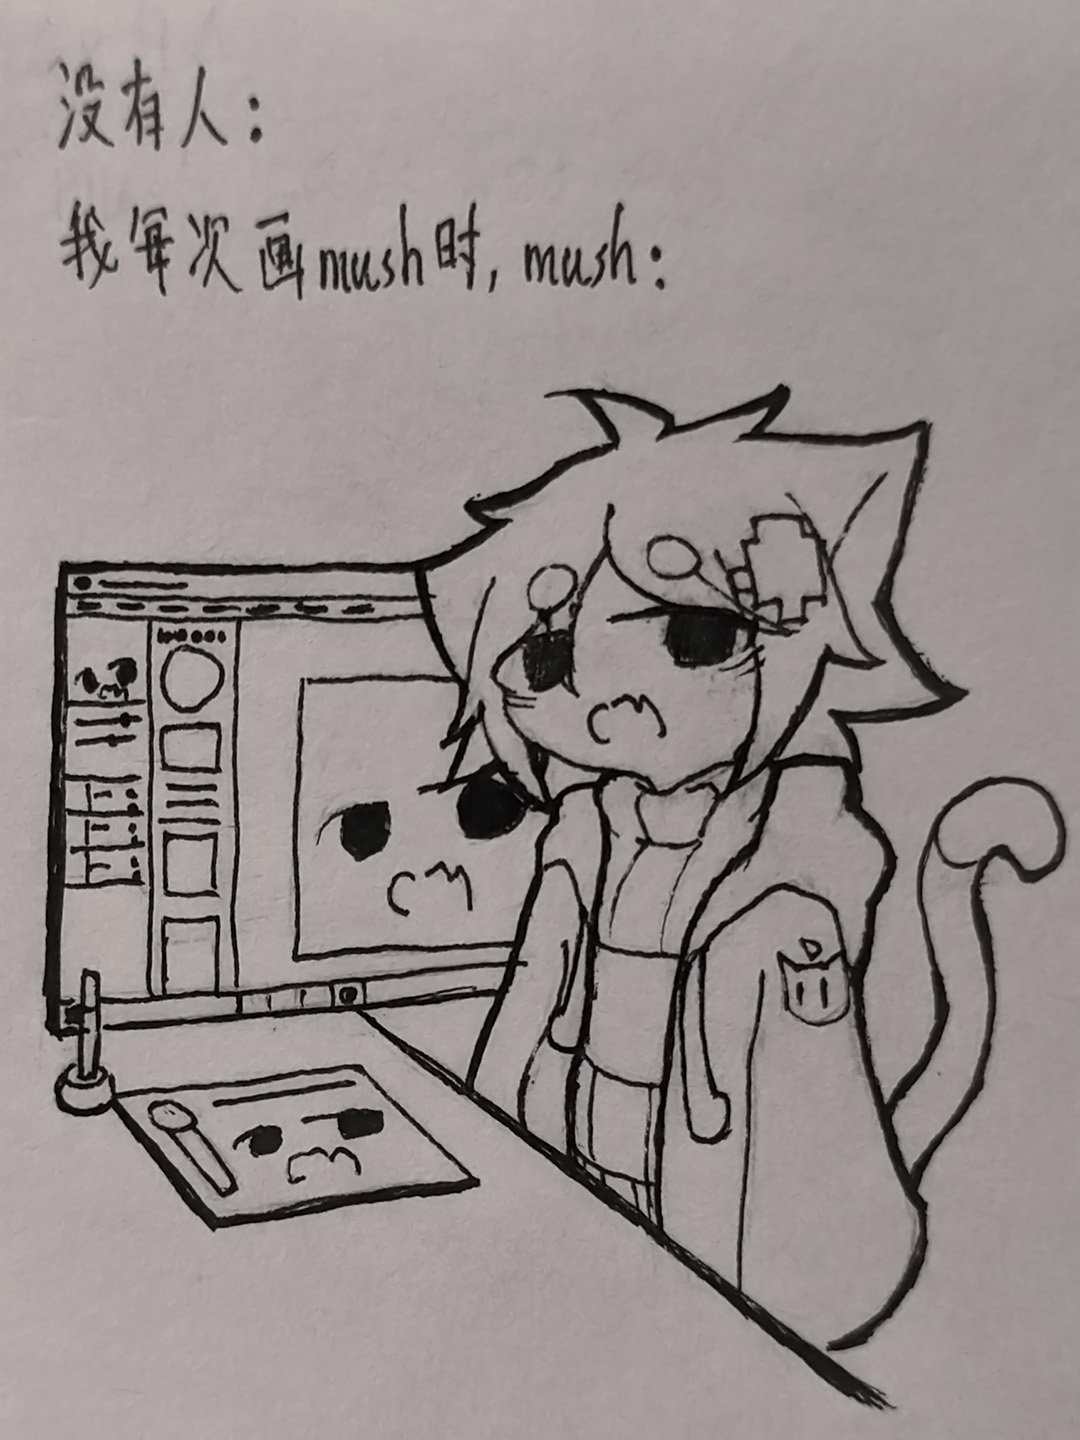 没有人：
我每次画mush时，mush：